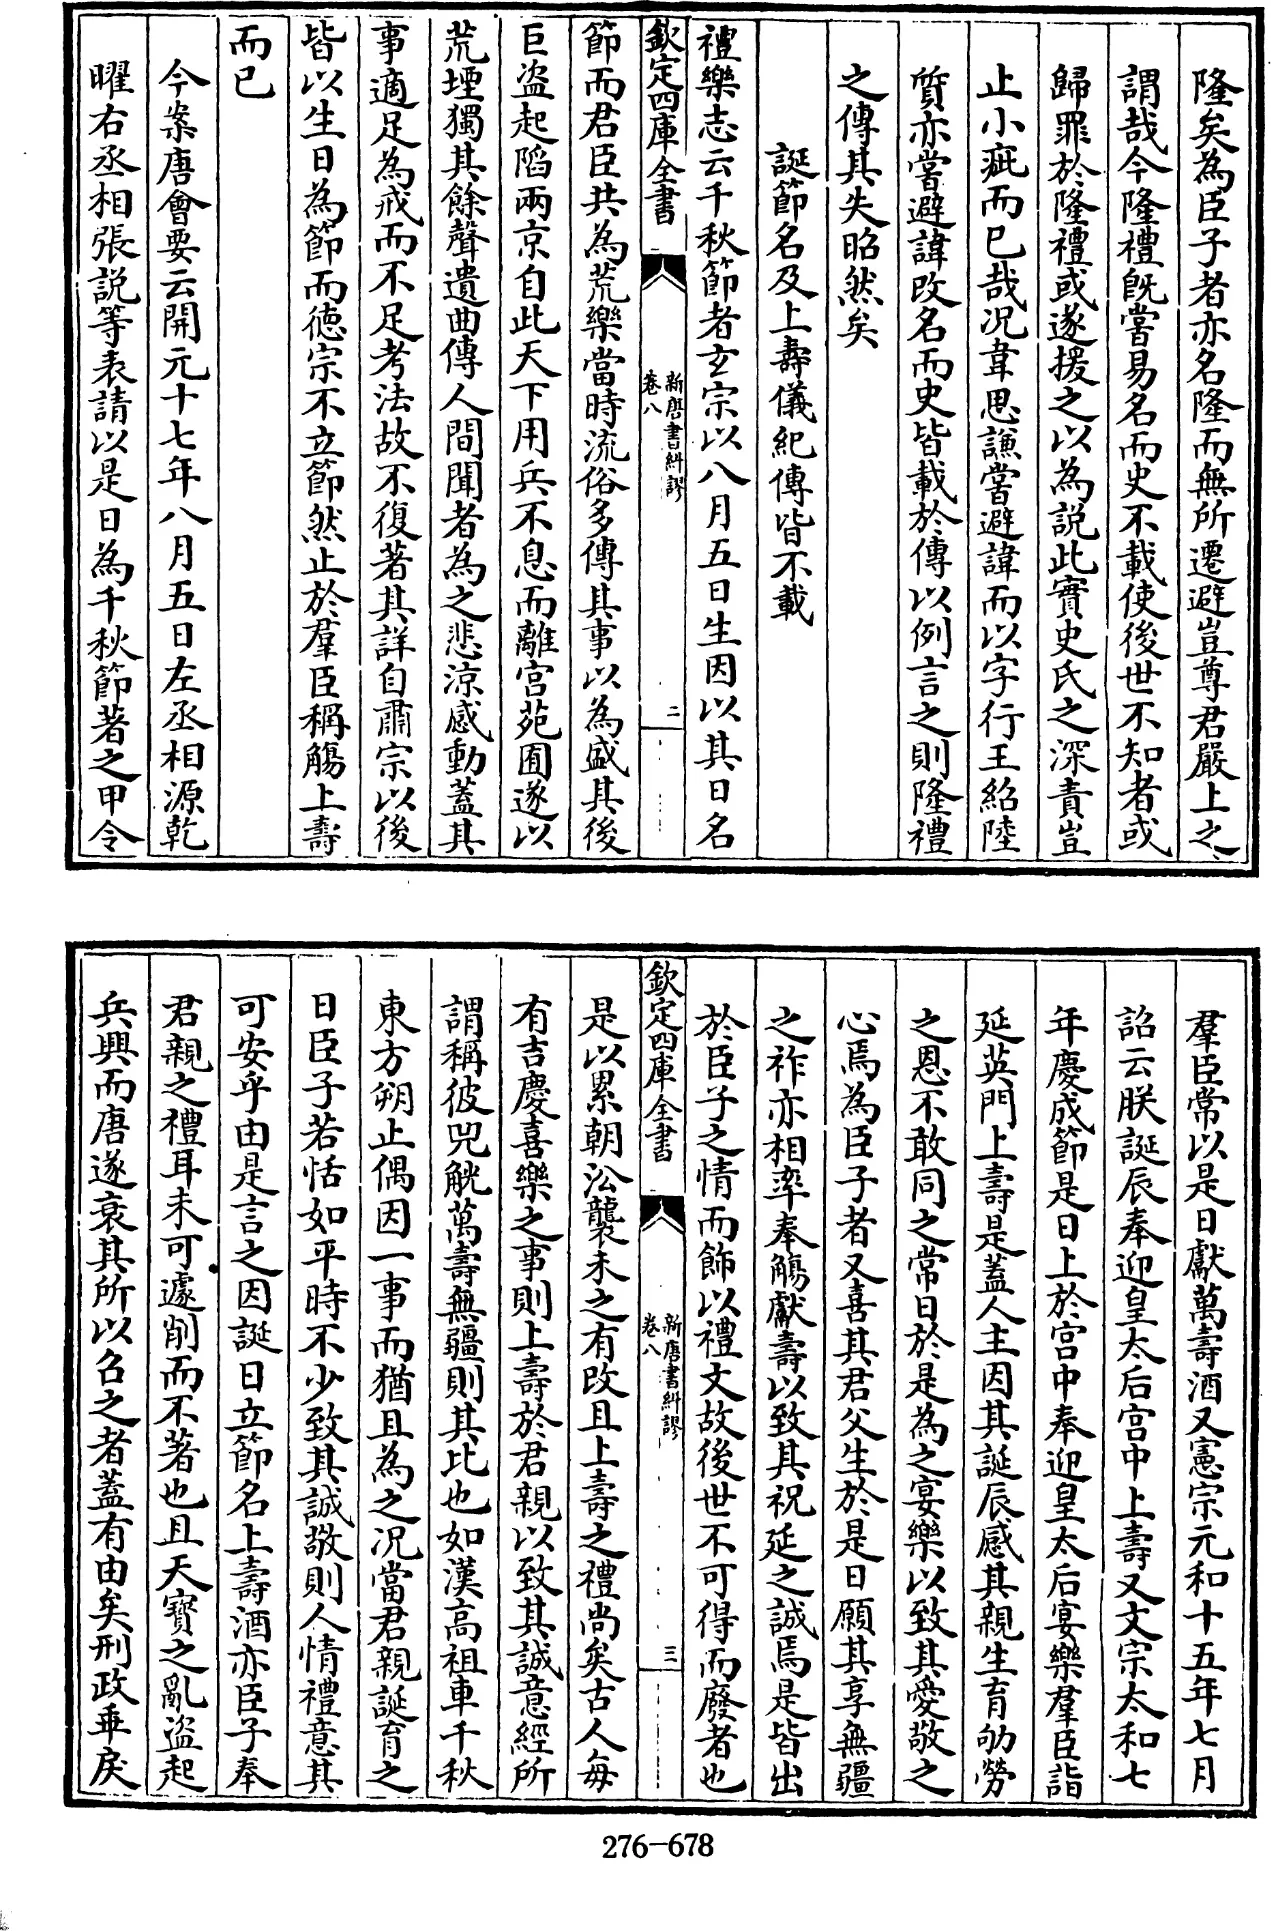 隆矣為臣子者亦名隆而無所遷避豈尊君嚴上之
謂哉今隆禮既嘗易名而史不載使後世不知者或
歸罪於隆禮或遂援之以為説此實史氏之深責豈
止小疵而已哉況韋思謙嘗避諱而以字行王紹陸
質亦嘗避諱改名而史皆載於傳以例言之則隆禮
之傳其失昭然矣
誕節名及上壽儀紀傳皆不載
禮樂志云千秋節者玄宗以八月五日生因以其日名
欽定四庫全書
新唐書糾謬
卷八
二
節而君臣共為荒樂當時流俗多傳其事以為盛其後
巨盗起陷兩京自此天下用兵不息而離宮苑囿遂以
荒堙獨其餘聲遺曲傳人間聞者為之悲涼感動蓋其
事適足為戒而不足考法故不復著其詳自肅宗以後
皆以生日為節而德宗不立節然止於羣臣稱觴上壽
而已
今案唐會要云開元十七年八月五日左丞相源乾
曜右丞相張説等表請以是日為千秋節著之甲令
羣臣常以是日獻萬壽酒又憲宗元和十五年七月
詔云朕誕辰奉迎皇太后宫中上壽又文宗太和七
年慶成節是日上於宫中奉迎皇太后宴樂羣臣詣
延英門上壽是蓋人主因其誕辰感其親生育劬勞
之恩不敢同之常日於是為之宴樂以致其愛敬之
心焉為臣子者又喜其君父生於是日願其享無疆
之祚亦相率奉觴獻壽以致其祝延之誠焉是皆出
於臣子之情而飾以禮文故後世不可得而廢者也
欽定四庫全書
新唐書糾謬
卷八
三
是以累朝沿襲未之有改且上壽之禮尚矣古人每
有吉慶喜樂之事則上壽於君親以致其誠意經所
謂稱彼兕觥萬壽無疆則其比也如漢高祖車千秋
東方朔止偶因一事而猶且為之況當君親誕育之
日臣子若恬如平時不少致其誠敬則人情禮意其
可安乎由是言之因誕日立節名上壽酒亦臣子奉
君親之禮耳未可遽削而不著也且天寶之亂盜起
兵興而唐遂衰其所以召之者蓋有由矣刑政乖戾
276-678